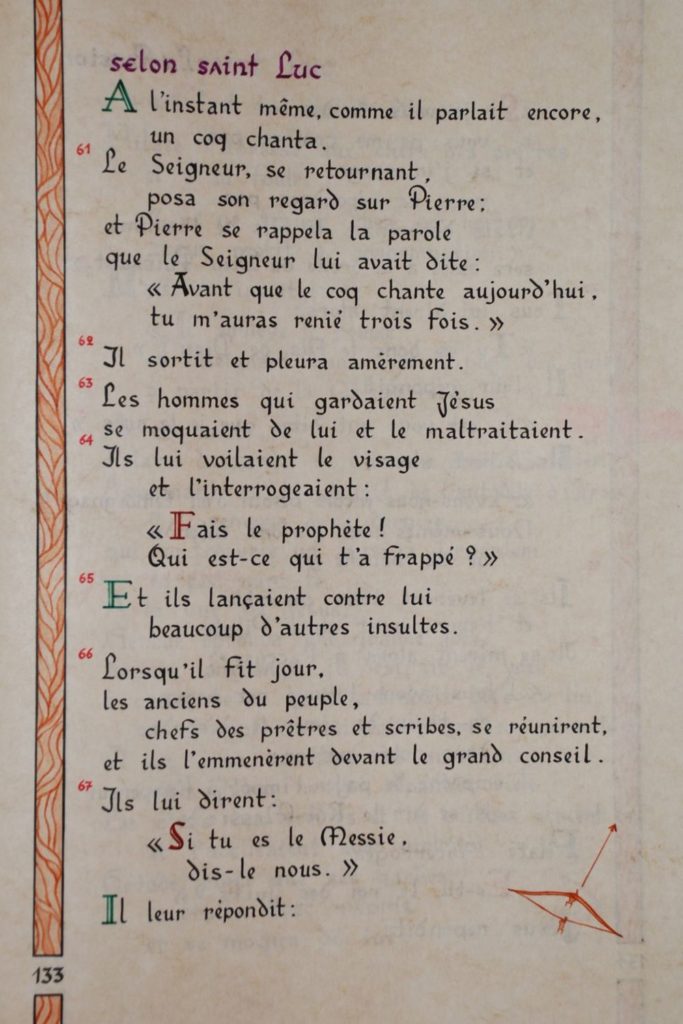 selon saint Luc
A l'instant même, comme il parlait encore,
un coq chanta.
61 Le Seigneur, se retournant,
posa son regard sur Pierre;
et Pierre se rappela la parole
que le Seigneur lui avait dite :
« Avant que le coq chante aujourd'hui,
tu m'auras renié trois fois. »
62 Il sortit et pleura amèrement.
63 Les hommes qui gardaient Jésus
se moquaient de lui et le maltraitaient.
64 Ils lui voilaient le visage
et l'interrogeaient :
« Fais le prophète !
Qui est-ce qui t'a frappé ? »
65 Et ils lançaient contre lui
beaucoup d'autres insultes.
66 Lorsqu'il fit jour,
les anciens du peuple,
chefs des prêtres et scribes, se réunirent,
et ils l'emmenèrent devant le grand conseil.
67 Ils lui dirent :
« Si tu es le Messie,
dis-le nous. »
Il leur répondit :
133